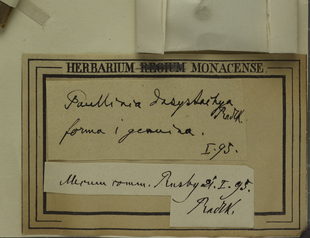 HERBARIUM REGIUM MONACENSE.
Paullinia dasystachya
Radlk.
forma 1 genuina.
I. 95.
Merum comm. Rusby I. 95.
Radlk.